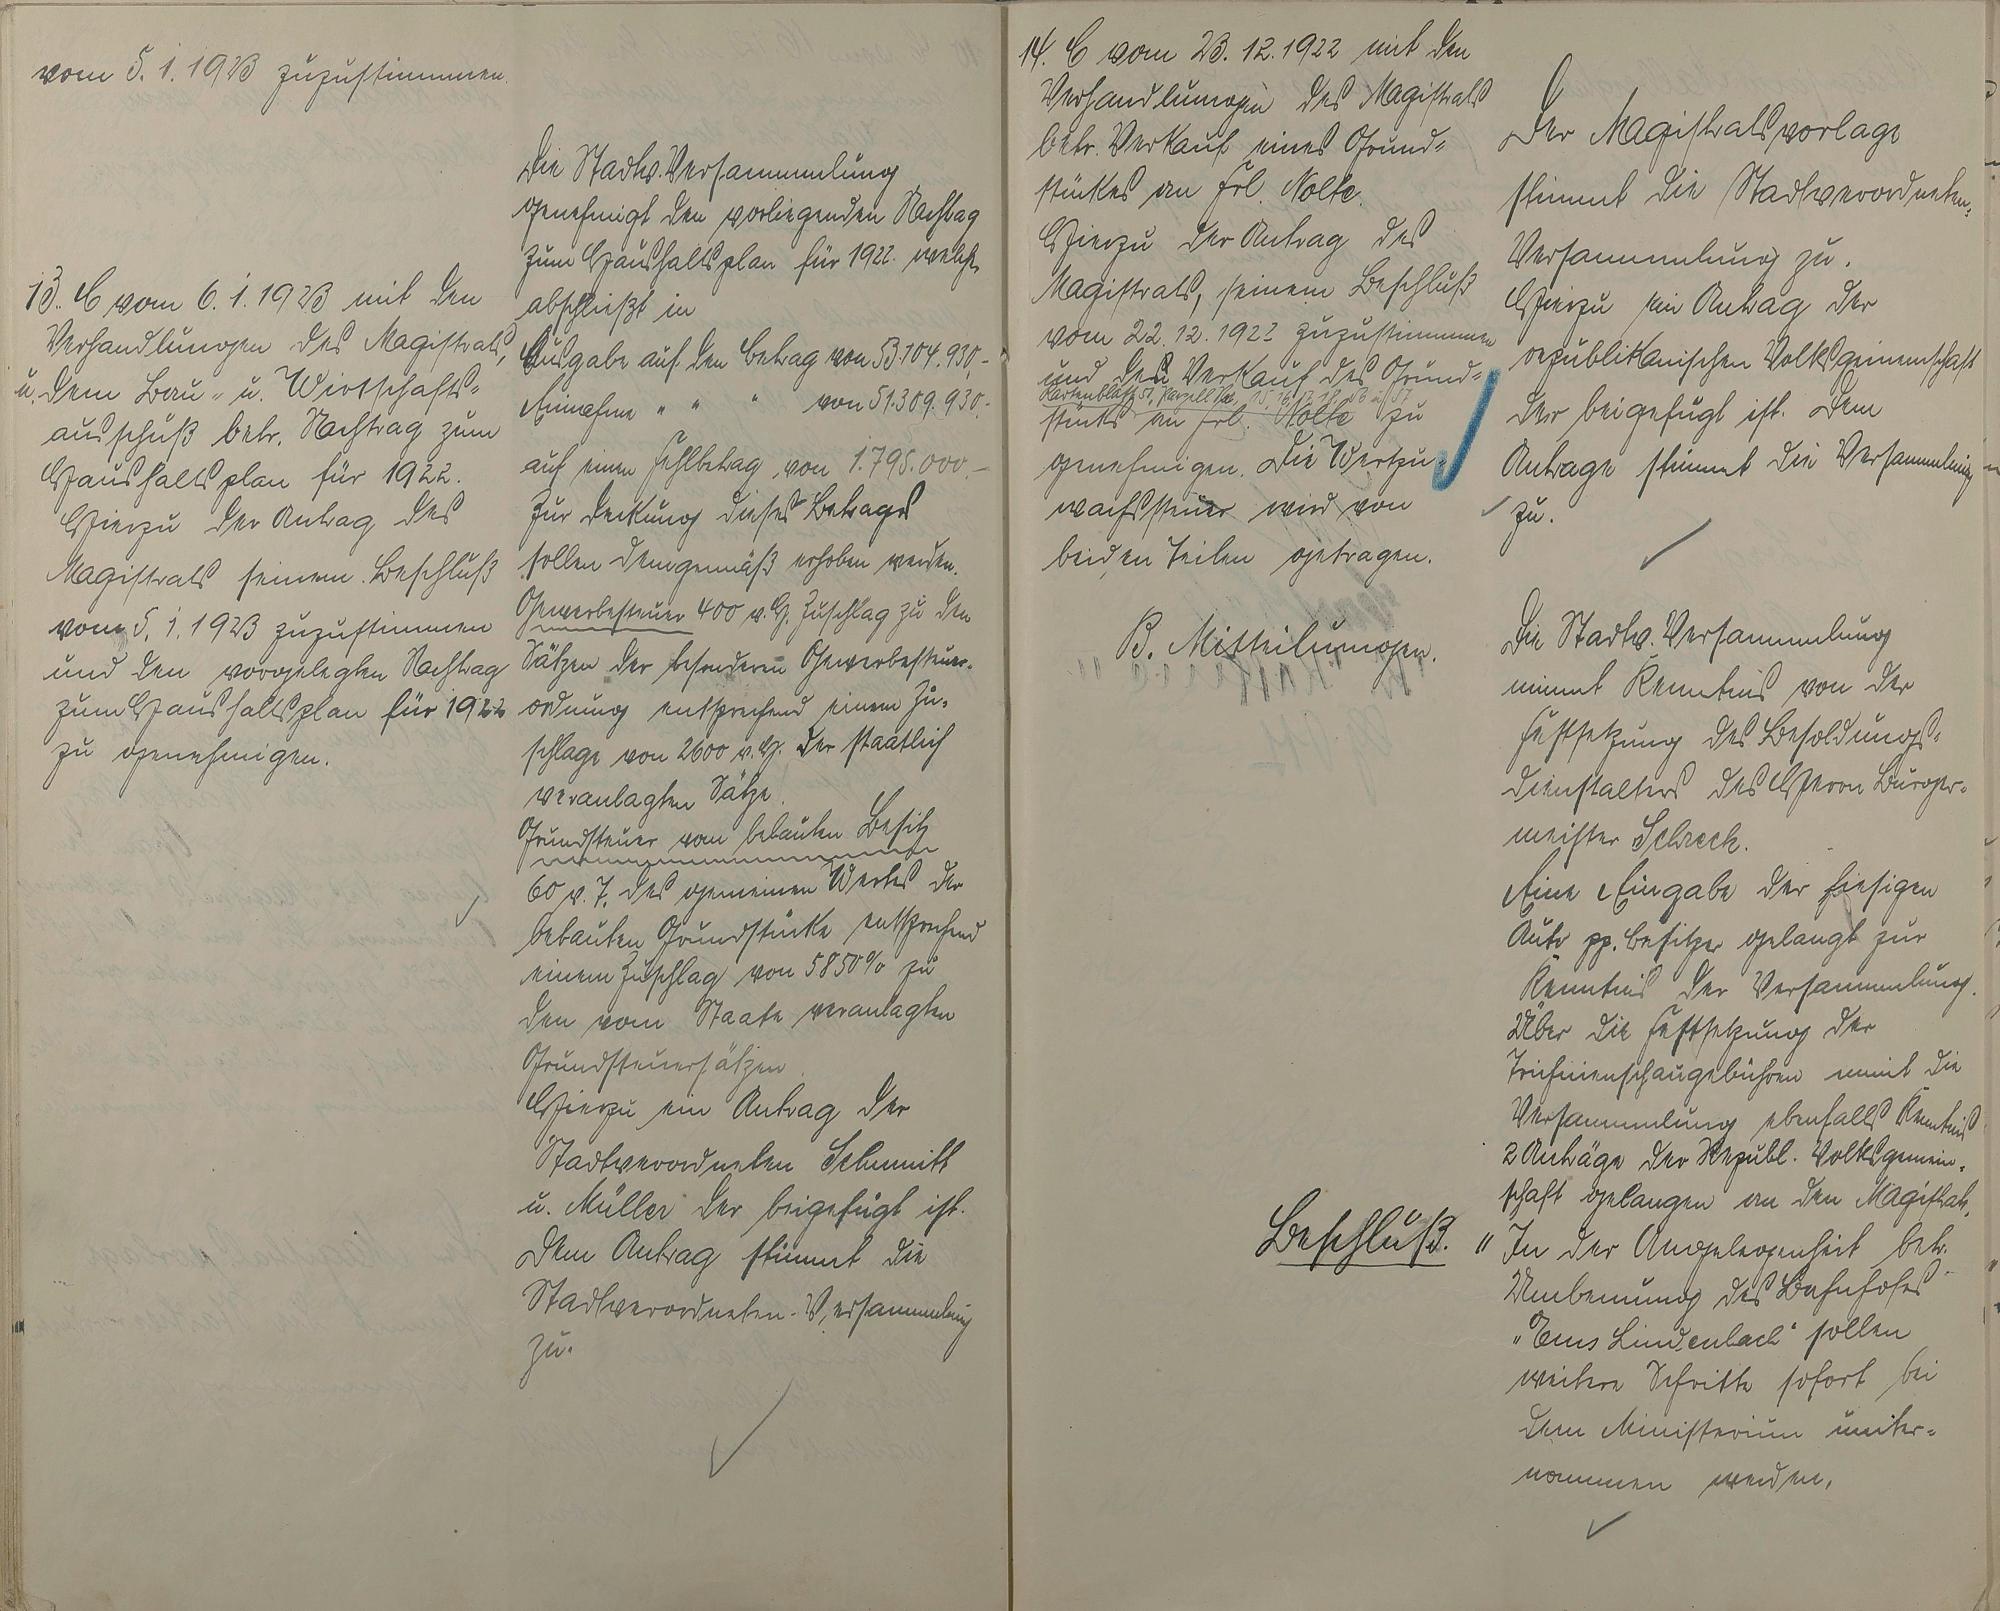 vom 5.1.1923 zuzustimmen.
13. C vom 6.1.1923 mit den
Verhandlungen des Magistrats,
u. dem Bau- u. Wirtschafts-
ausschuß betr. Nachtrag zum
Haushaltsplan für 1922.
Hierzu der Antrag des
Magistrats seinem Beschluß
vom 5.1.1923 zuzustimmen
und den vorgelegten Nachtrag
zum Haushaltsplan für 1922
zu genehmigen.
Die Stadtv. Versammmlung
genehmigt den vorliegenden Nachtrag
zum Haushaltsplan für 1922. welch.
abschließt in
Ausgabe auf den Betrag von 53.104.930,-
Einnahme " " " von 51.309.930,-
auf einen Fehlbetrag von 1.795.000,-
Zur Deckung dieses Betrags
sollen demgemäß erhoben werden.
Gewerbesteuer 400 v.H. Zuschlag zu den
Sätzen der besonderen Gewerbesteuer-
ordnung entsprechend einem Zu-
schlage von 2600 v.H. der staatlich
veranlagten Sätze.
Grundsteuer vom bebauten Besitz
60 v.T. des gemeinen Wertes der
bebauten Grundstücke entsprechend
einem Zuschlag von 5850% zu
den vom Staate veranlagten
Grundsteuersätzen.
Hierzu ein Antrag der
Stadtverordneten Schmitt
u. Müller der beigefügt ist.
Dem Antrag stimmt die
Stadtverordneten-Versammlung
zu.
14. C vom 23.12.1922 mit den
Verhandlungen des Magistrats
betr. Verkauf eines Grund-
stückes an Frl. Nolte.
Hierzu der Antrag des
Magistrats, seinem Beschluß
vom 22.12.1922 zuzustimmen
und den Verkauf des Grund-
Kartenblatt 51, Parzell No. 15, 16, 17, 18, 56 u. 57
stücks an Frl. Nolte zu
genehmigen. Die Wertzu-
wachssteuer wird von
beiden Teilen getragen.
B. Mitteilungen.
Beschluß.
Der Magistratsvorlage
stimmt die Stadtverordneten-
Versammlung zu.
Hierzu ein Antrag der
republikanischen Volksgemeinschaft
der beigefügt ist. Dem
Antrage stimmt die Versammlung
zu.
Die Stadtv. Versammlung
nimmt Kenntnis von der
Festsetzung des Besoldungs-
dienstalters des Herrn Bürger-
meister Schreck.
Eine Eingabe der hiesigen
Auto pp. Besitzer gelangt zur
Kenntnis der Versammlung.
Über die Festsetzung der
Trichinenschaugebühren nimt die
Versammlung ebenfalls Kenntnis
2 Anträge der Republ. Volksgemein-
schaft gelangen an den Magistrat.
" In der Angelegenheit betr.
Umbenung des Bahnhofes
„Ems Lindenbach" sollen
weitere Schritte sofort bei
dem Ministerium unter-
nommen werden.